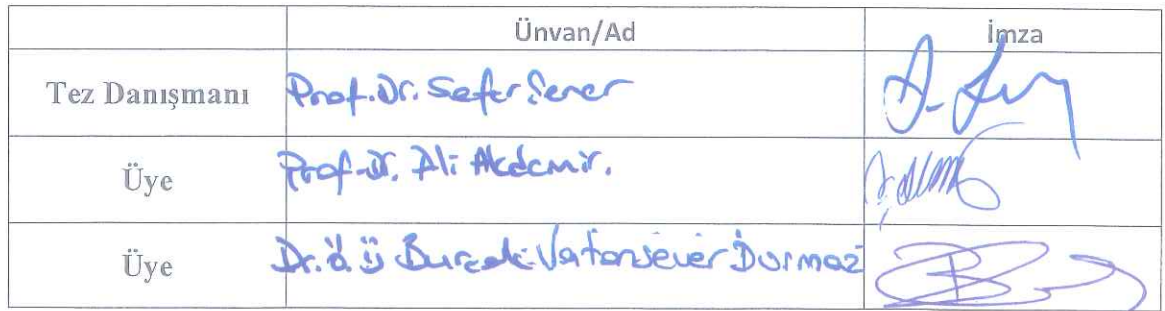 Ünvan/Ad İmza
Tez Danışmanı Prof. Dr. Sefer Şener
Üye Prof. Dr. Ali Akdemir.
Üye Dr. Ö. Ü Burcak Vatansever Durmaz